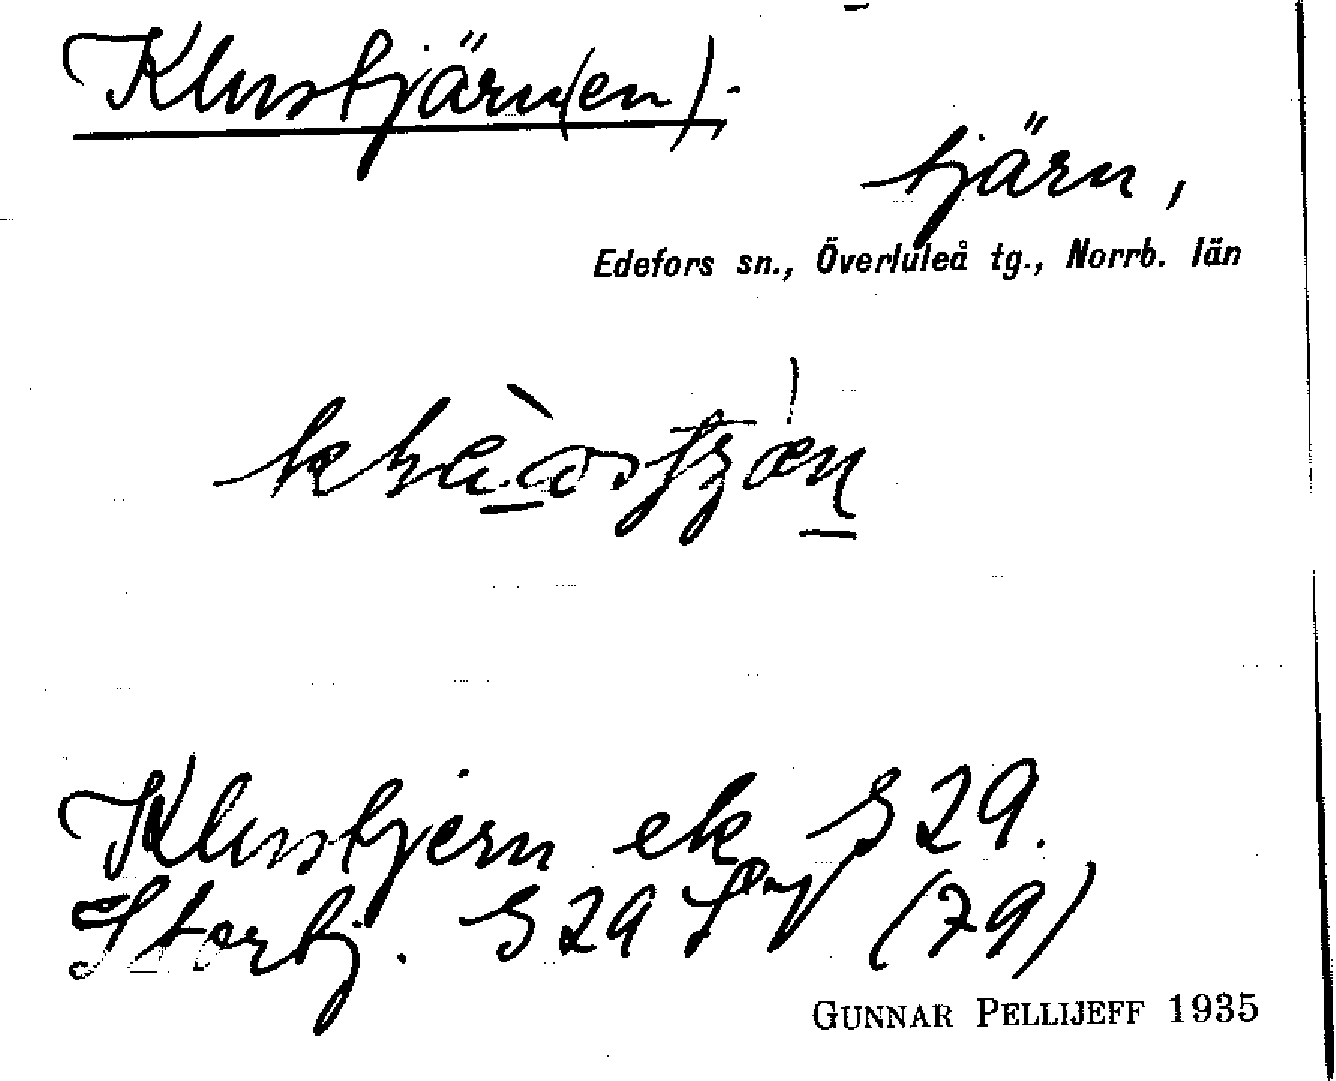 Klustjärn(en).
tjärn,
Edefors sn., Överluleå tg., Norrb. län
Klustjern ek 329.
Stortj. 329 (79)
GUNNAR PELLIJEFF 1935